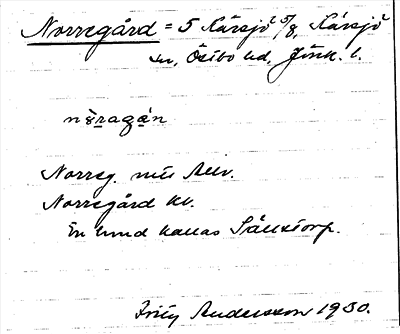 Norregård = 5 Kärsjö 5/8, Kärsjö
sn, Östbo hd, Jönk. l.
nǒragán
Norreg. mii Allv.
Norregård kv.
En lund kallas Sånstorp.
Fritz Andersson 1930.